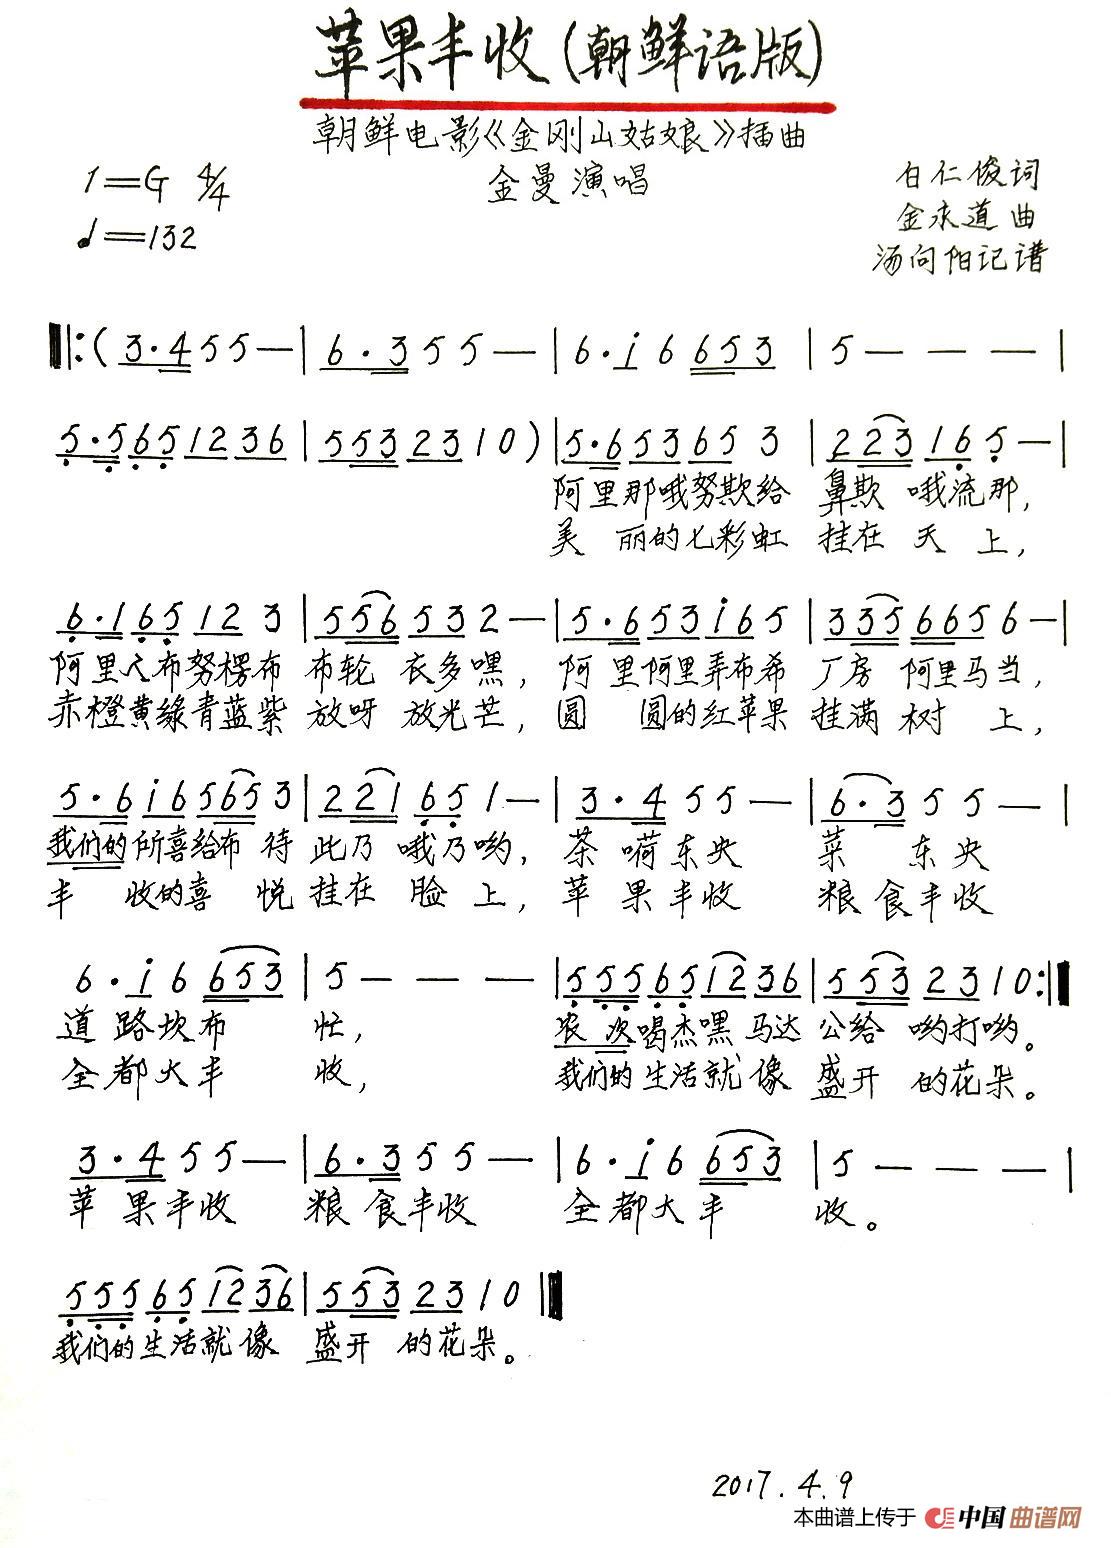 苹果丰收(朝鲜语版)
朝鲜电影《金刚山姑娘》插曲
1=G 4/4
金曼演唱
白仁俊词
♩=132
金永道曲
汤向阳记谱
‖:(3·4 5 5 — | 6·3 5 5 — | 6·i 6 653 | 5 — — — |
5·5 65 12 36 | 553 23 1 0 ) | 5·6 53 65 3 | 223 16 5 — |
阿里那哦努欺给 鼻欺 哦流那,
美 丽的七彩虹 挂在 天 上,
6·1 65 12 3 | 556 53 2 — | 5·6 53 i6 5 | 335 665 6 — |
阿里人布努楞布 布轮 衣多嘿, 阿 里阿里弄布希 厂房 阿里马当,
赤橙黄绿青蓝紫 放呀 放光芒, 圆 圆的红苹果 挂满 树 上,
5·6 i6 565 3 | 221 65 1 — | 3·4 5 5 — | 6·3 5 5 — |
我们的所喜给布 待 此乃 哦乃哟, 茶 嗬东央 菜 东央
丰 收的喜 悦 挂在 脸 上, 苹 果丰收 粮食丰收
6·i 6 653 | 5 — — — | 555 65 12 36 | 553 23 1 0 :‖
道 路坎布 忙, 农 次喝杰嘿 马达 公给 哟打哟。
全都大丰 收, 我们的生活就 像 盛开 的花朵。
3·4 5 5 — | 6·3 5 5 — | 6·i 6 653 | 5 — — — |
苹 果丰收 粮 食丰收 全都大丰 收。
555 65 12 36 | 553 23 1 0 ‖
我们的生活就 像 盛开 的花朵。
2017.4.9
本曲谱上传于 中国曲谱网